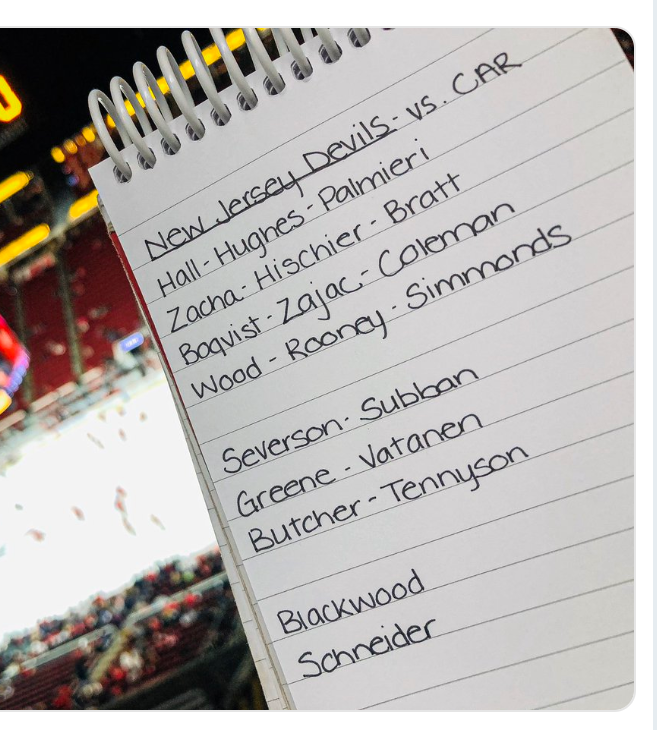 New Jersey Devils - vs. CAR
Hall - Hughes - Palmieri
Zacha - Hischier - Bratt
Boqvist - Zajac - Coleman
Wood - Rooney - Simmonds
Severson - Subban
Greene - Vatanen
Butcher - Tennyson
Blackwood
Schneider